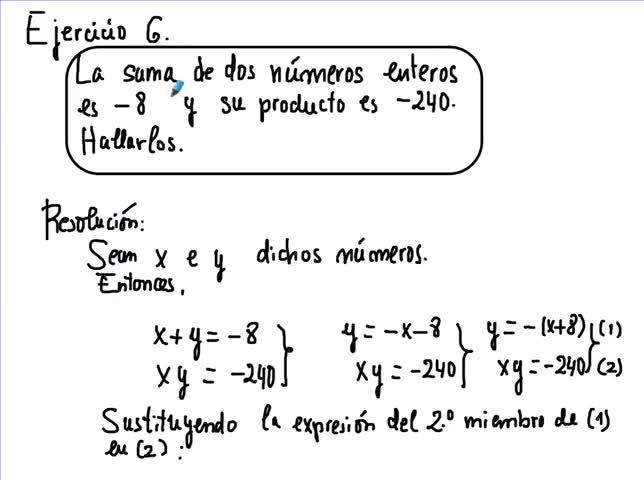 Ejercicio 6.
La suma de dos números enteros
es -8 y su producto es -240.
Hallarlos.
Resolución:
Sean x e y dichos números.
Entonces,
x+y = -8 } y = -x-8 } y = -(x+8) } (1)
xy = -240 } xy = -240 } xy = -240 } (2)
Sustituyendo la expresión del 2.º miembro de (1)
en (2):